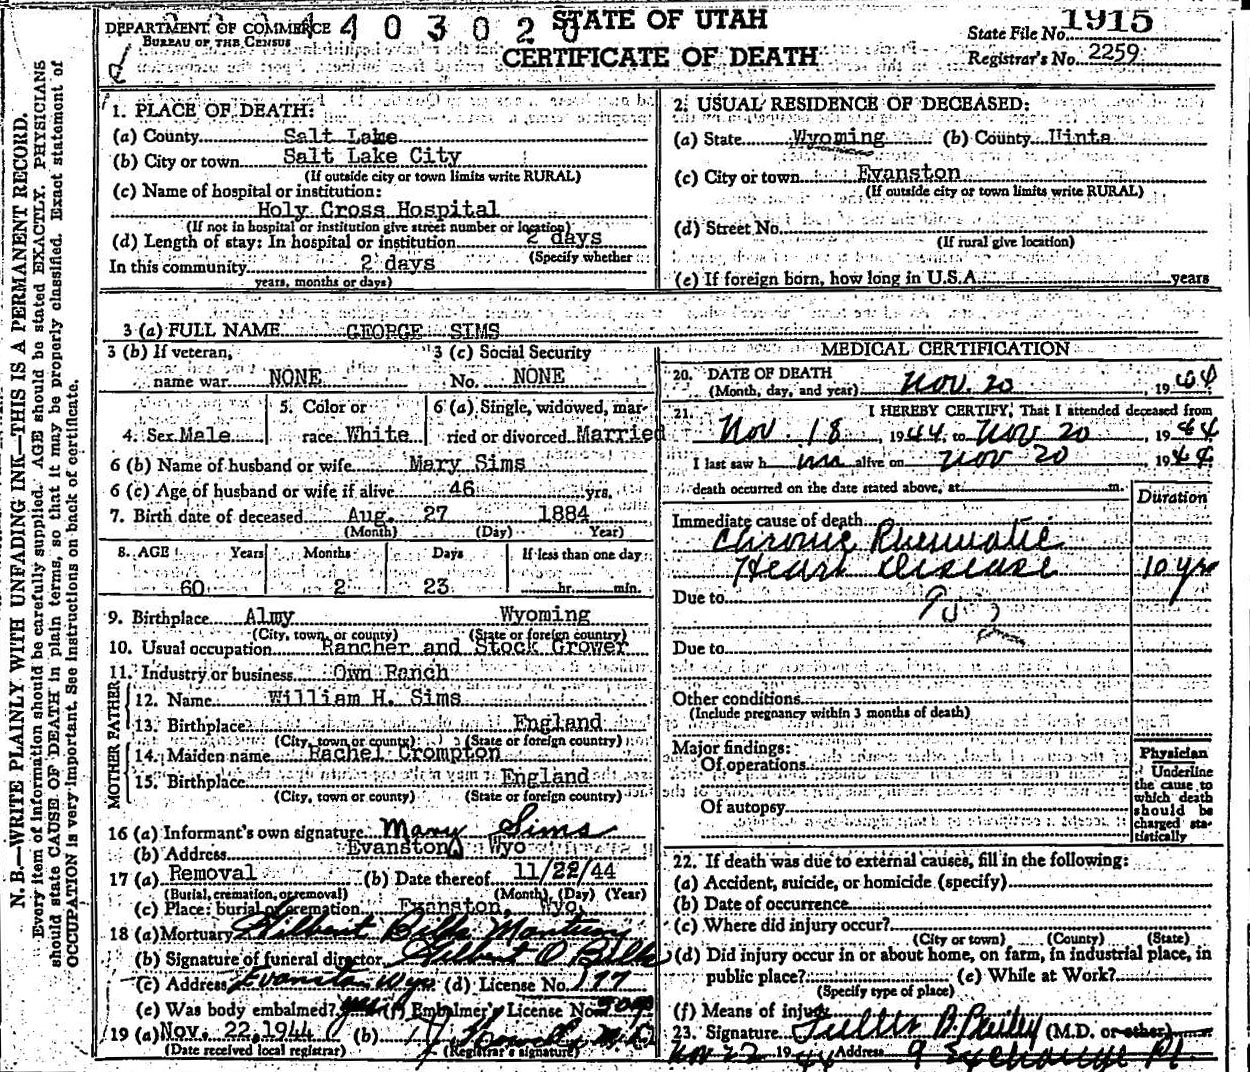 DEPARTMENT OF COMMERCE
BUREAU OF THE CENSUS
4 0 3 0 2 0
STATE OF UTAH
CERTIFICATE OF DEATH
State File No. 1915
Registrar's No. 2259
N. B.—WRITE PLAINLY WITH UNFADING INK—THIS IS A PERMANENT RECORD.
Every item of information should be carefully supplied. AGE should be stated EXACTLY. PHYSICIANS
should state CAUSE OF DEATH in plain terms, so that it may be properly classified. Exact statement of
OCCUPATION is very important. See instructions on back of certificate.
1. PLACE OF DEATH:
(a) County Salt Lake
(b) City or town Salt Lake City
(If outside city or town limits write RURAL)
(c) Name of hospital or institution:
Holy Cross Hospital
(If not in hospital or institution give street number or location)
(d) Length of stay: In hospital or institution 2 days
(Specify whether
In this community 2 days
years, months or days)
2. USUAL RESIDENCE OF DECEASED:
(a) State Wyoming (b) County Uinta
(c) City or town Evanston
(If outside city or town limits write RURAL)
(d) Street No.
(If rural give location)
(e) If foreign born, how long in U.S.A. years
3 (a) FULL NAME GEORGE SIMS
3 (b) If veteran, name war NONE
3 (c) Social Security No. NONE
4. Sex Male
5. Color or race White
6 (a) Single, widowed, married or divorced Married
6 (b) Name of husband or wife Mary Sims
6 (c) Age of husband or wife if alive 46 yrs.
7. Birth date of deceased Aug. 27 1884
(Month) (Day) Year)
8. AGE Years Months Days If less than one day
60 2 23 hr. min.
9. Birthplace Almy Wyoming
(City, town, or county) (State or foreign country)
10. Usual occupation Rancher and Stock Grower
11. Industry or business Own Ranch
FATHER
12. Name William H. Sims
13. Birthplace England
(City, town or county) (State or foreign country)
MOTHER
14. Maiden name Rachel Crompton
15. Birthplace England
(City, town or county) (State or foreign country)
16 (a) Informant's own signature Mary Sims
(b) Address Evanston, Wyo
17 (a) Removal (b) Date thereof 11/22/44
(Burial, cremation, or removal) (Month) (Day) (Year)
(c) Place: burial or cremation Evanston, Wyo.
18 (a) Mortuary Gilbert Bills Mortuary
(b) Signature of funeral director Gilbert O Bills
(c) Address Evanston Wyo (d) License No. 177
(e) Was body embalmed? yes (f) Embalmer's License No.
19 (a) Nov. 22, 1944 (b) M.D.
(Date received local registrar) (Registrar's signature)
MEDICAL CERTIFICATION
20. DATE OF DEATH
(Month, day, and year) Nov. 20 1944
21. I HEREBY CERTIFY, That I attended deceased from
Nov. 18, 1944, to Nov 20 1944
I last saw him alive on Nov 20 1944
death occurred on the date stated above, at m.
Duration
Immediate cause of death
Chronic Rheumatic
Heart Disease 10 yrs
Due to
Due to
Other conditions
(Include pregnancy within 3 months of death)
Major findings:
Of operations
Of autopsy
Physician
Underline
the cause to
which death
should be
charged sta-
tistically
22. If death was due to external causes, fill in the following:
(a) Accident, suicide, or homicide (specify)
(b) Date of occurrence
(c) Where did injury occur?
(City or town) (County) (State)
(d) Did injury occur in or about home, on farm, in industrial place, in
public place? (e) While at Work?
(Specify type of place)
(f) Means of injury
23. Signature Fuller B. Bailey (M.D. or other)
Nov 22 1944 Address 9 Exchange Pl.